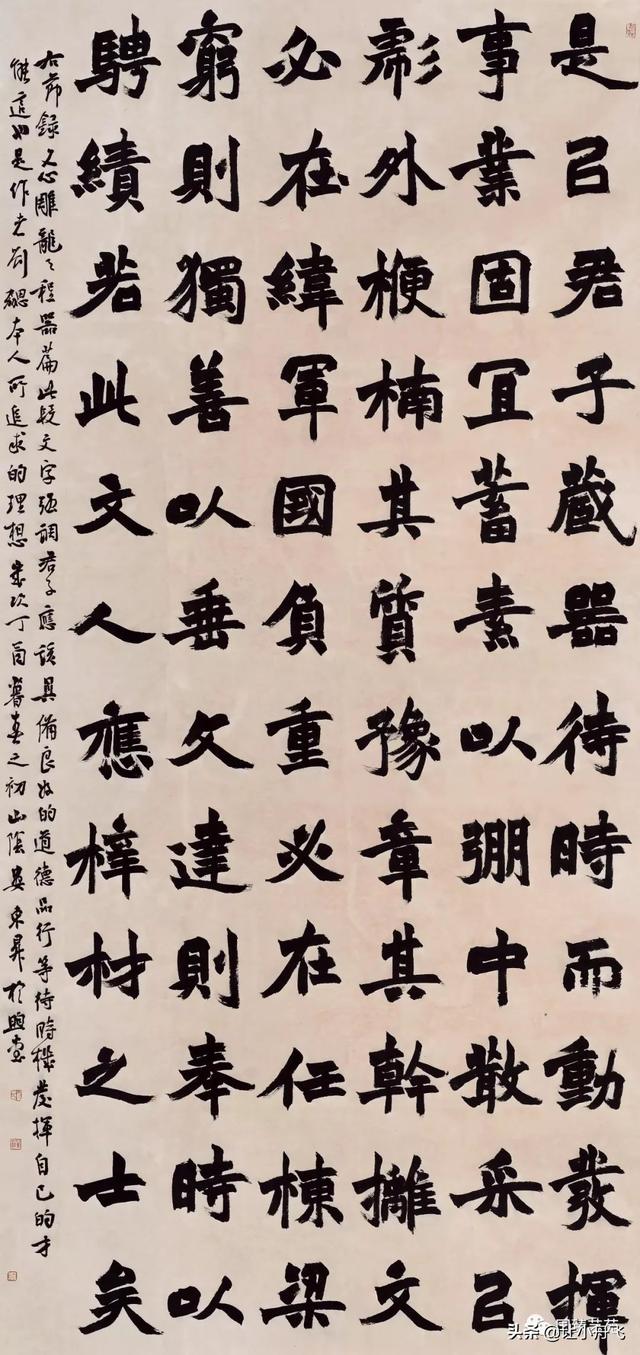 是㠯君子藏器待時而動發揮
事業固宜蓄素以弸中散采㠯
彪外楩楠其質豫章其幹攡文
必在緯軍國負重必在任棟梁
窮則獨善以垂文達則奉時以
騁績若此文人應梓材之士矣
右節錄文心雕龍之程器篇此段文字強調君子應該具備良好的道德品行等待時機發揮自己的才
能這也是作者劉勰本人所追求的理想歲次丁酉暮春之初山陰吳東昇於
头条 @让小舟飞